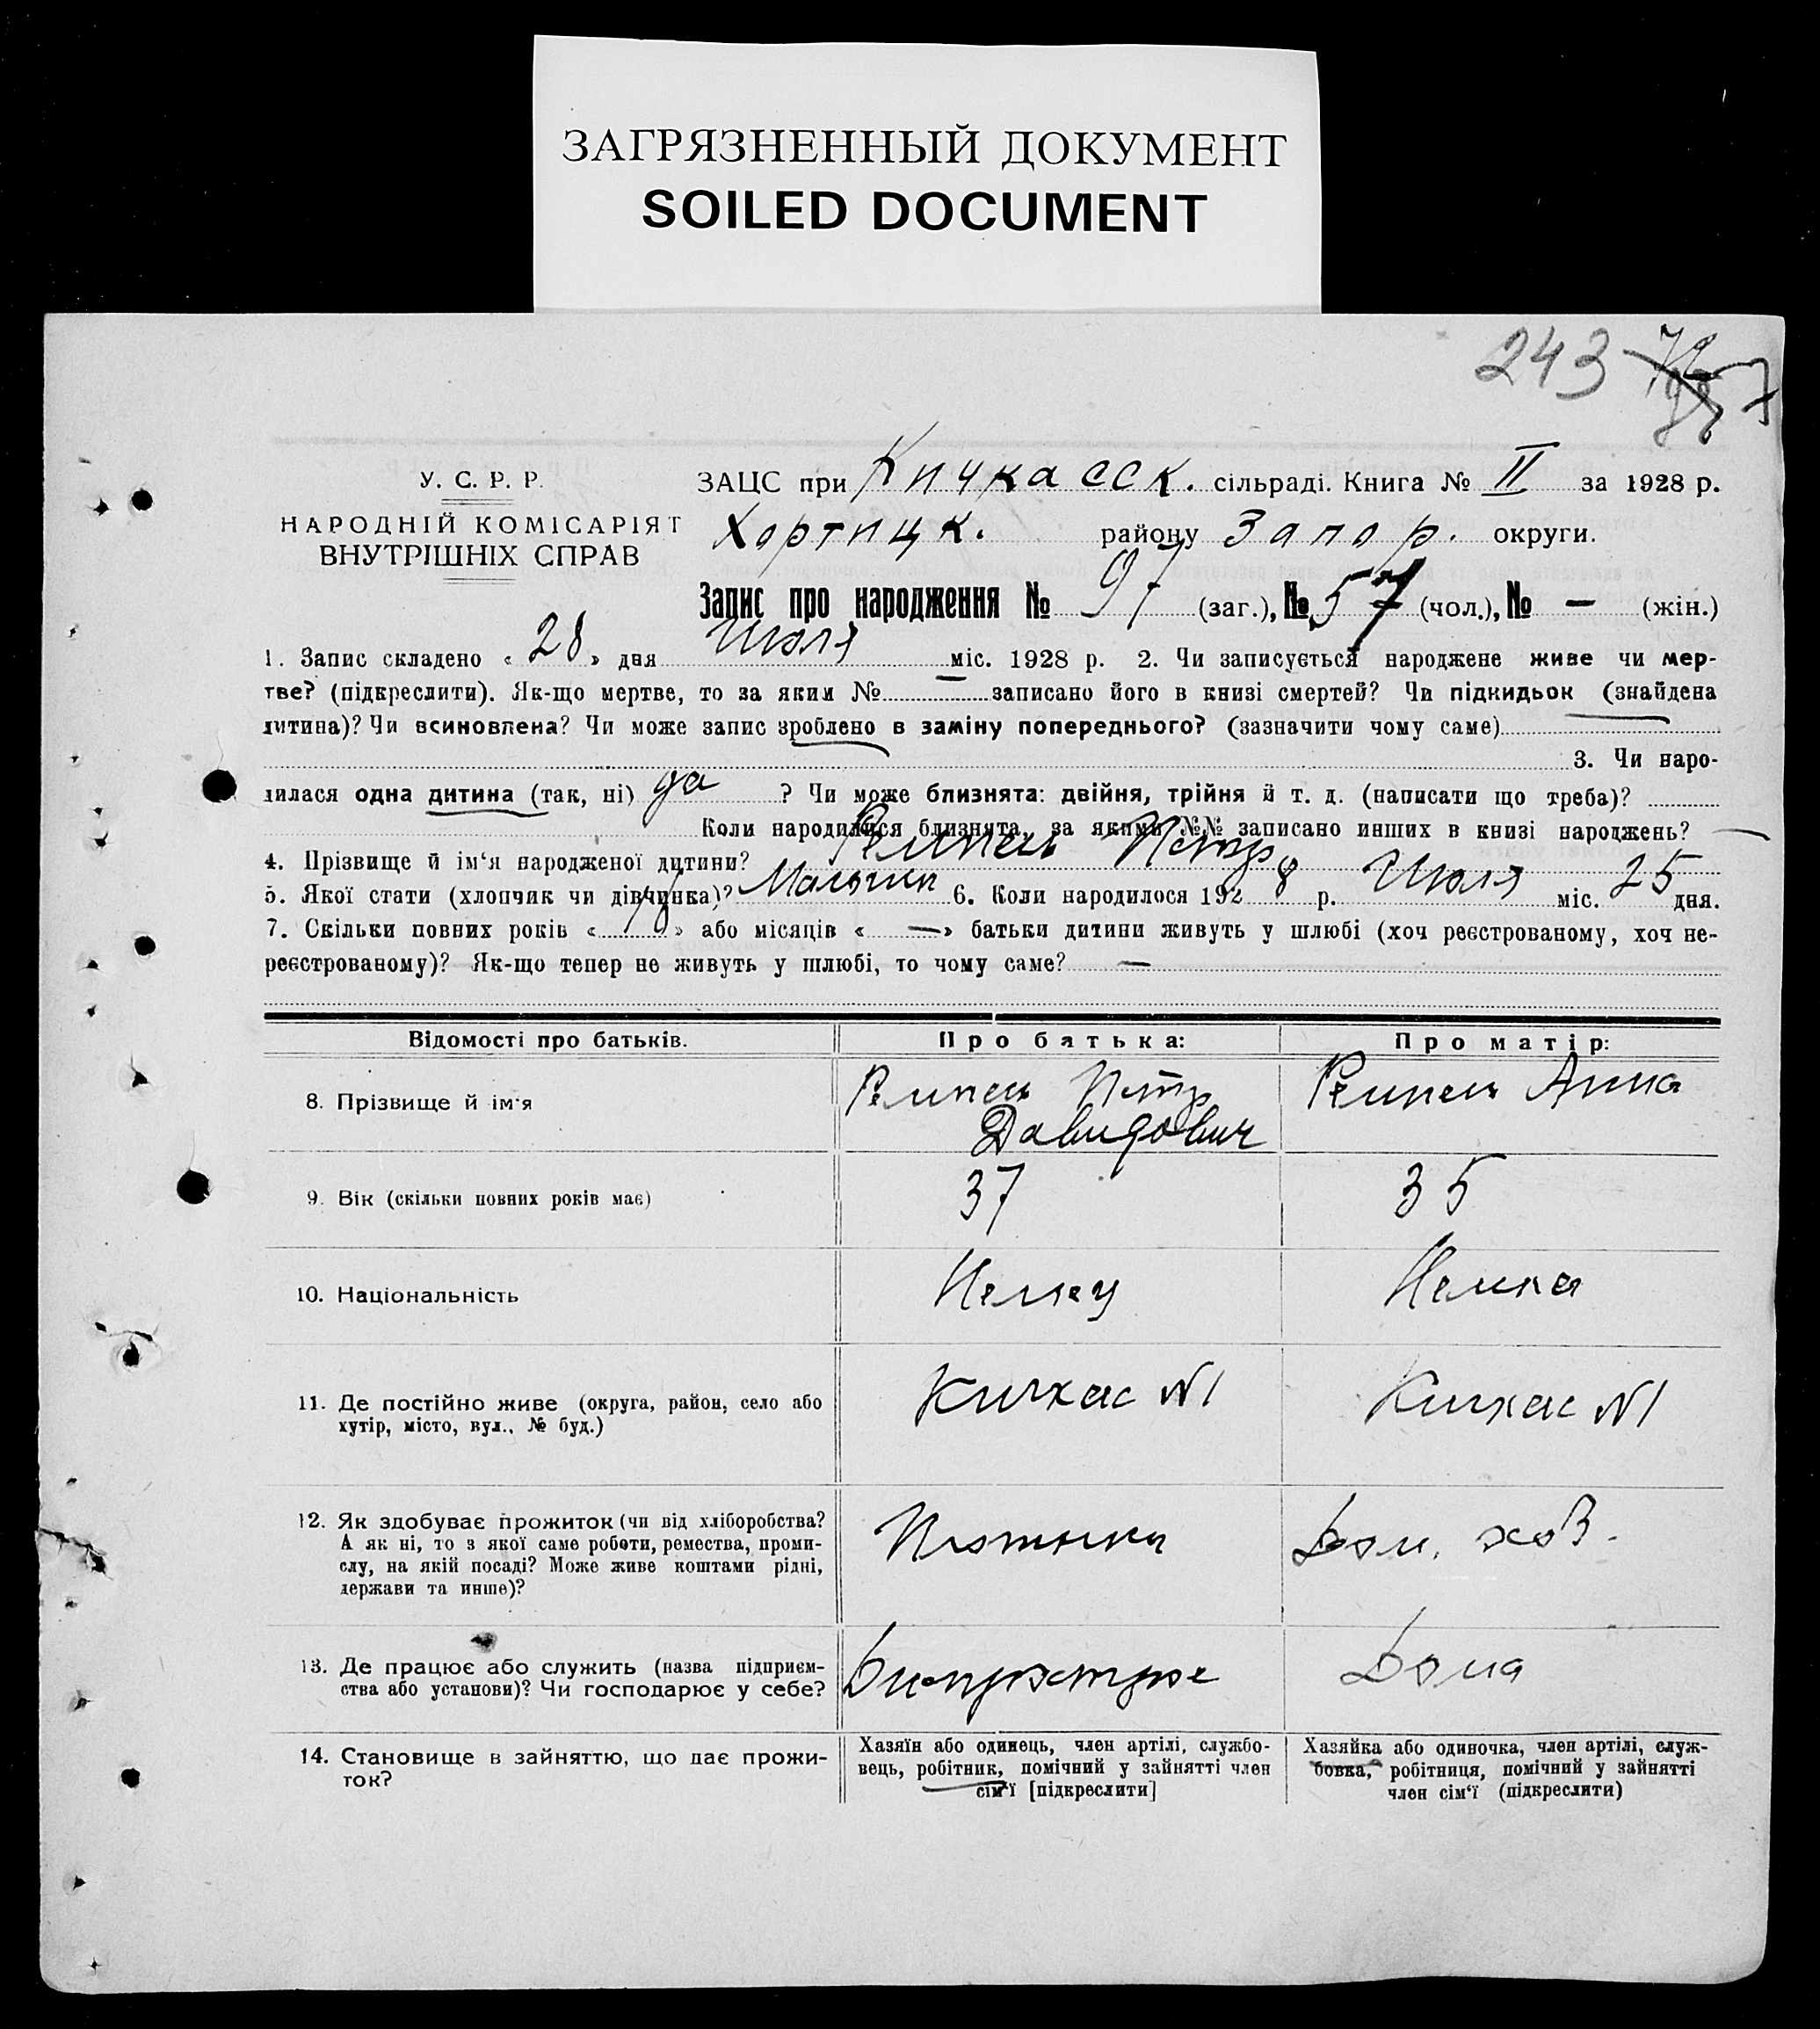 ЗАГРЯЗНЕННЫЙ ДОКУМЕНТ
SOILED DOCUMENT
243
У. С. Р. Р.
НАРОДНІЙ КОМІСАРІЯТ
ВНУТРІШНІХ СПРАВ
ЗАЦС при Кичкасск. сільраді. Книга № II за 1928 р.
Хортицк. району Запор. округи.
Запис про народження № 97 (заг.), № 57 (чол.), № — (жін.)
1. Запис складено « 28 » дня Июля міс. 1928 р. 2. Чи записується народжене живе чи мер-
тве? (підкреслити). Як-що мертве, то за яким № — записано його в книзі смертей? Чи підкидьок (знайдена
дитина)? Чи всиновлена? Чи може запис зроблено в заміну попереднього? (зазначити чому саме)
3. Чи наро-
дилася одна дитина (так, ні) да ? Чи може близнята: двійня, трійня й т. д. (написати що треба)?
Коли народилися близнята, за якими №№ записано инших в книзі народжень? —
4. Прізвище й ім‘я народженої дитини? Ремпель Петр
5. Якої стати (хлопчик чи дівчинка)? Мальчик 6. Коли народилося 1928 р. Июля міс. 25 дня.
7. Скільки повних років « » або місяців « — » батьки дитини живуть у шлюбі (хоч реєстрованому, хоч не-
реєстрованому)? Як-що тепер не живуть у шлюбі, то чому саме? —
Відомості про батьків. Про батька: Про матір:
8. Прізвище й ім‘я Ремпель Петр Ремпель Анна
Давидович
9. Вік (скільки повних років має) 37 35
10. Національність Немец Немка
11. Де постійно живе (округа, район, село або
хутір, місто, вул., № буд.)
Кичкас N1 Кичкас N1
12. Як здобуває прожиток (чи від хліборобства?
А як ні, то з якої саме роботи, ремества, проми-
слу, на якій посаді? Може живе коштами рідні,
держави та инше)?
Дом. хоз.
13. Де працює або служить (назва підприєм-
ства або установи)? Чи господарює у себе?
Днепрострое Дома
14. Становище в зайняттю, що дає прожи-
ток?
Хазяїн або одинець, член артілі, службо-
вець, робітник, помічний у зайнятті член
сім‘ї [підкреслити]
Хазяйка або одиночка, член артілі, служ-
бовка, робітниця, помічний у зайнятті
член сім‘ї (підкреслити)